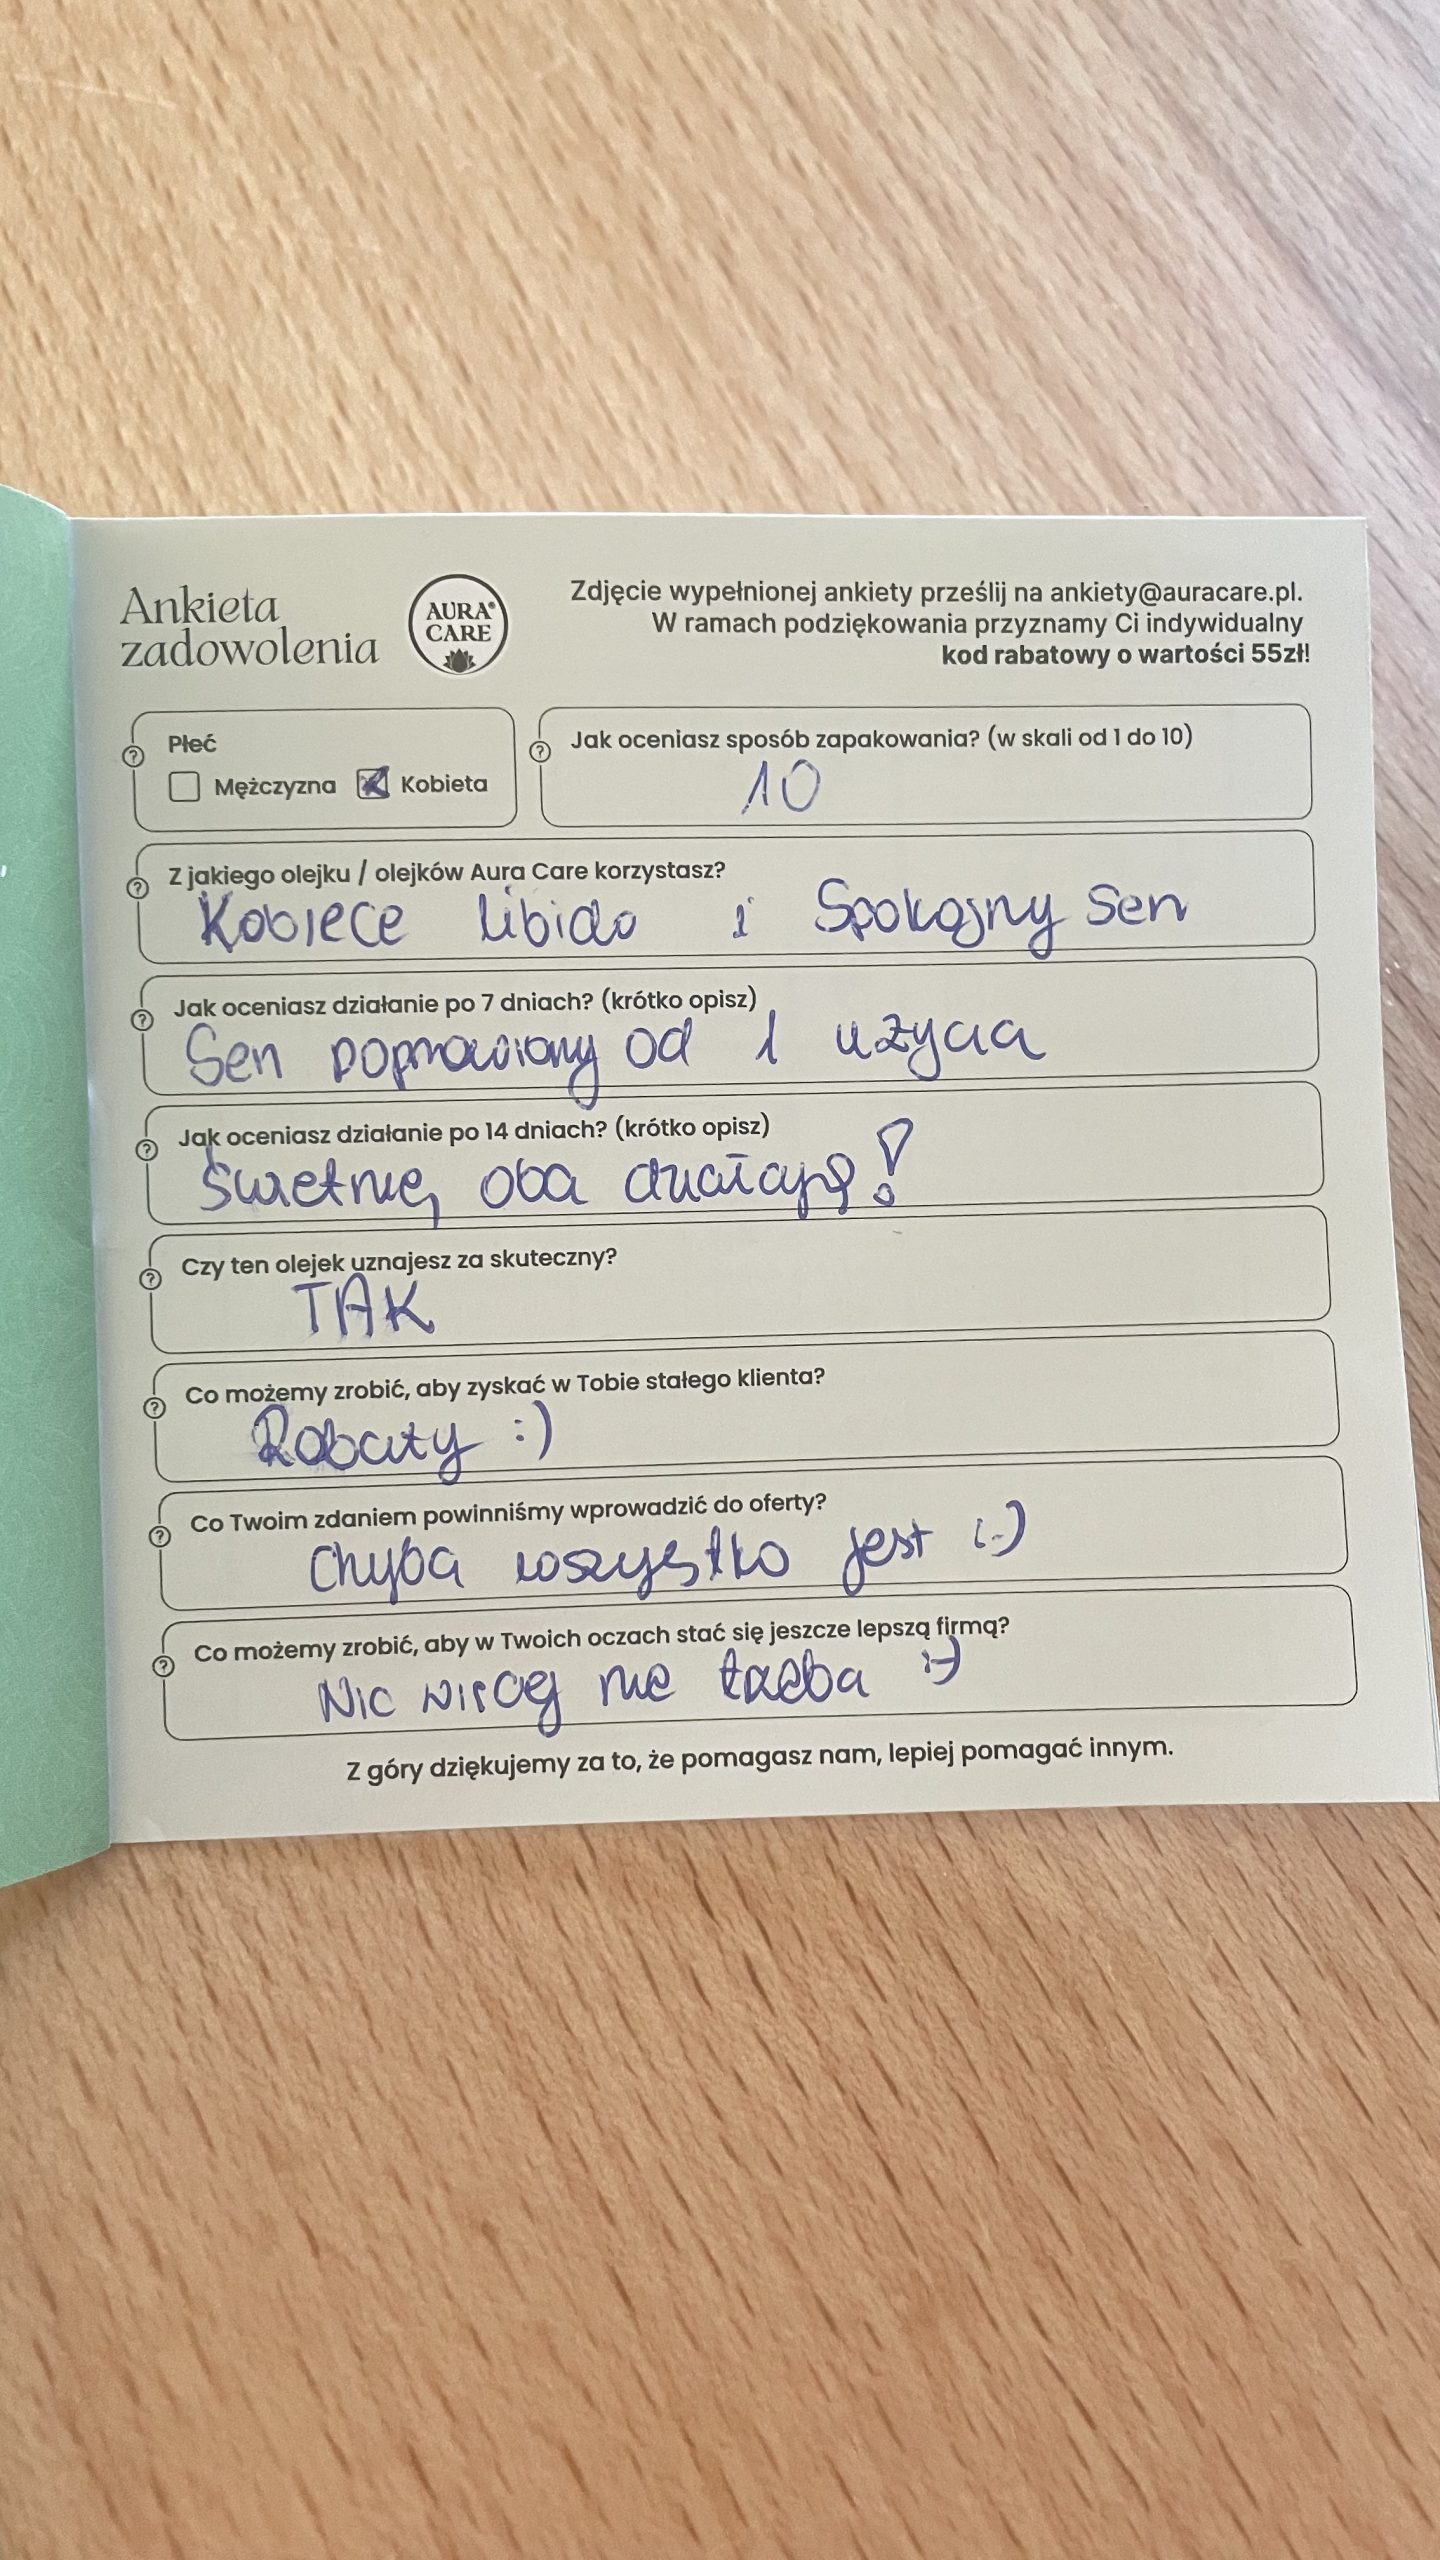 Ankieta
zadowolenia
AURA®
CARE
Zdjęcie wypełnionej ankiety prześlij na ankiety@auracare.pl.
W ramach podziękowania przyznamy Ci indywidualny
kod rabatowy o wartości 55zł!
Płeć
Mężczyzna Kobieta
Jak oceniasz sposób zapakowania? (w skali od 1 do 10)
10
Z jakiego olejku / olejków Aura Care korzystasz?
Kobiece libido i Spokojny Sen
Jak oceniasz działanie po 7 dniach? (krótko opisz)
Sen poprawiony od 1 użycia
Jak oceniasz działanie po 14 dniach? (krótko opisz)
Świetnie, oba działają!
Czy ten olejek uznajesz za skuteczny?
TAK
Co możemy zrobić, aby zyskać w Tobie stałego klienta?
Rabaty :)
Co Twoim zdaniem powinniśmy wprowadzić do oferty?
Chyba wszystko jest :-)
Co możemy zrobić, aby w Twoich oczach stać się jeszcze lepszą firmą?
Nic więcej nie trzeba :-)
Z góry dziękujemy za to, że pomagasz nam, lepiej pomagać innym.